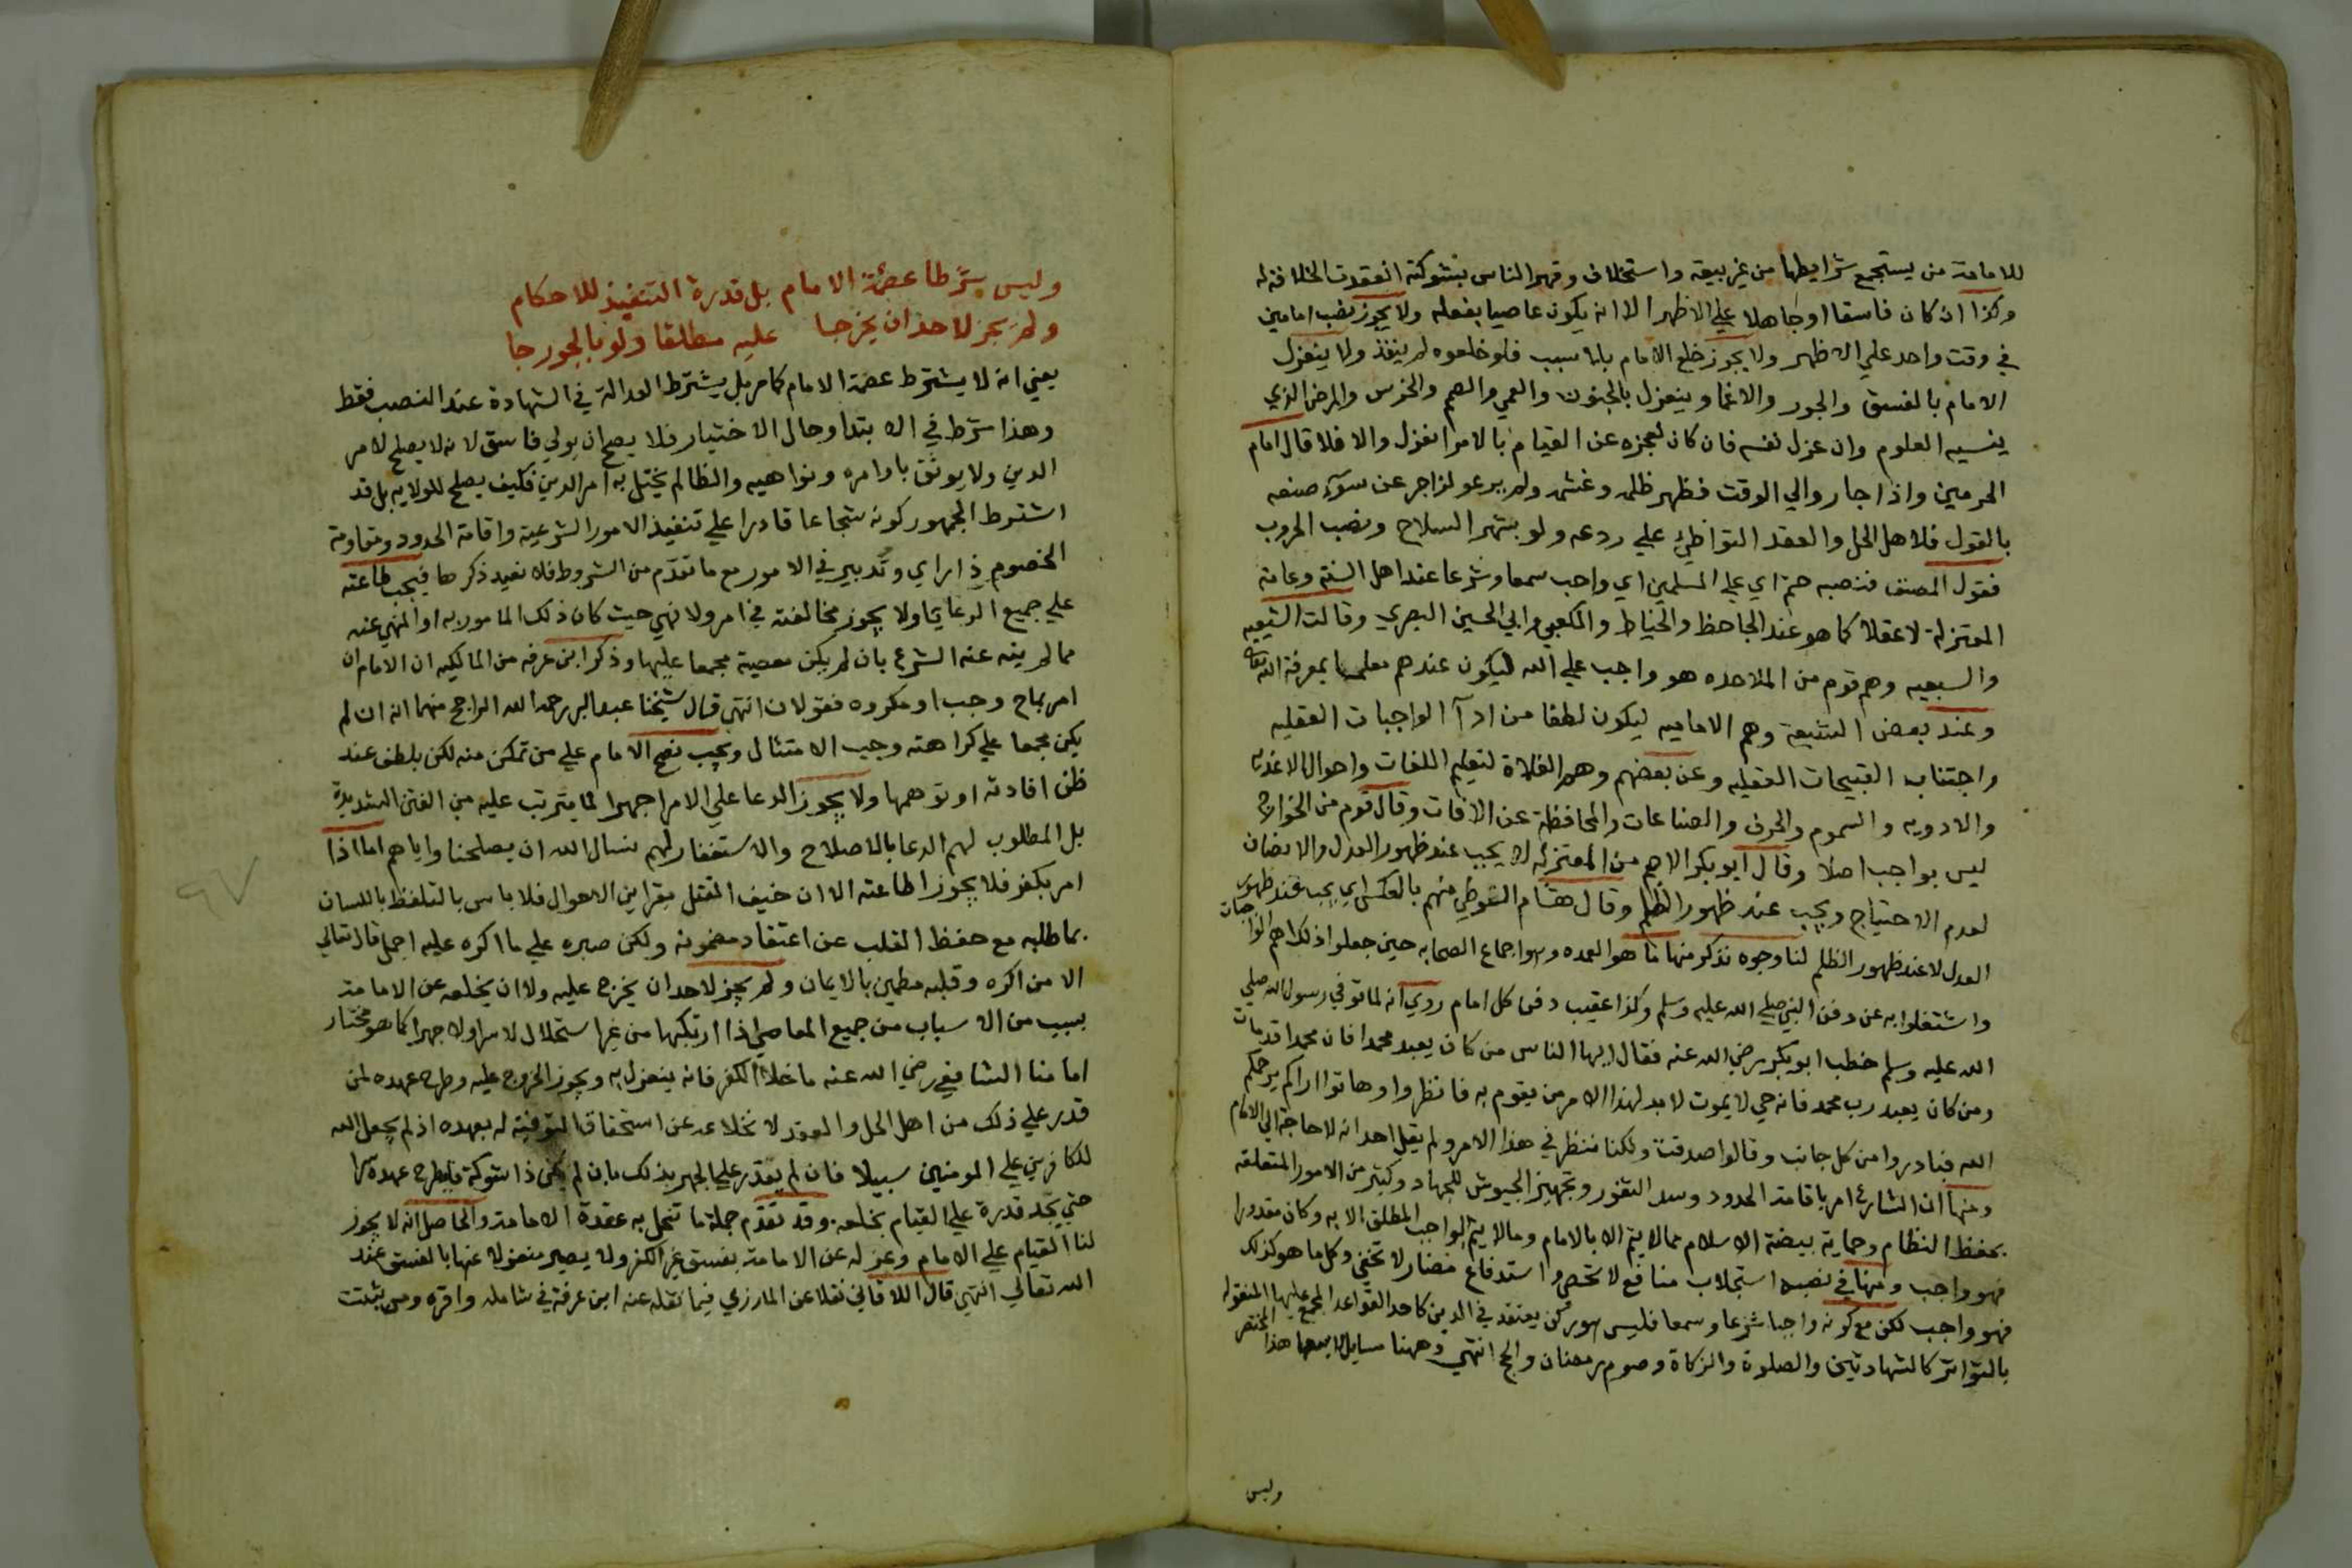 للامامة من يستجمع شرايطها من غير بيعة واستخلاف وقهر الناس بشوكته انعقدت الخلافة له
وكذا ان كان فاسقا او جاهلا علي الاظهر الا انه يكون عاصيا بفعله ولا يجوز نصب امامين
في وقت واحد علي الاظهر ولا يجوز خلع الامام بلا سبب فلو خلعوه لم ينفذ ولا ينعزل
الامام بالفسق والجور والاغما وينعزل بالجنون والعمي والصمم والخرس والمرض الذي
ينسيه العلوم وان عزل نفسه فان كان لعجزه عن القيام بالامر انعزل والا فلا قال امام
الحرمين واذا جار والي الوقت فظهر ظلمه وغشمه ولم يرعو لزاجر عن سوء صنعه
بالقول فلاهل الحل والعقد التواطئ علي ردعه ولو بشهر السلاح ونصب الحروب
فقول المصنف فنصبه حتم اي علي المسلمين اي واجب سمعا وشرعا عند اهل السنة وعامة
المعتزلة لا عقلا كما هو عند الجاحظ والخياط والكعبي وابي الحسين البصري وقالت الشيعه
والسبعيه وهم قوم من الملاحده هو واجب علي الله ليكون عندهم معلما بمعرفة الله تعالي
وعند بعض الشيعة وهم الاماميه ليكون لطفا من ادآ الواجبات العقليه
واجتناب القبيحات العقليه وعن بعضهم وهم الغلاة لتعليم اللغات واحوال الاغذية
والادويه والسموم والحرف والصناعات والمحافظة عن الافات وقال قوم من الخوارج
ليس بواجب اصلا وقال ابو بكر الاصم من المعتزله لا يجب عند ظهور العدل والانصاف
لعدم الاحتياج ويجب عند ظهور الظلم وقال هشام الفوطي منهم بالعكس اي يجب عند ظهور
العدل لا عند ظهور الظلم لنا وجوه نذكر منها ما هو العمده وهو اجماع الصحابه حين جعلوا ذلك اهم الواجبات
واشتغلوا به عن دفن النبي صلي الله عليه وسلم وكذا عقيب دفن كل امام روي انه لما توفي رسول الله صلي
الله عليه وسلم خطب ابو بكر رضي الله عنه فقال ايها الناس من كان يعبد محمدا فان محمدا قد مات
ومن كان يعبد رب محمد فانه حي لا يموت لا بد لهذا الامر من يقوم به فانظروا وهاتوا اراكم يرحمكم
الله فبادروا من كل جانب وقالوا صدقت ولكنا ننظر في هذا الامر ولم يقل احد انه لا حاجة الي الامام
ومنها ان الشارع امر باقامة الحدود وسد الثغور وتجهيز الجيوش للجهاد وكثير من الامور المتعلقه
بحفظ النظام وحماية بيضة الاسلام مما لا يتم الا بالامام وما لا يتم الواجب المطلق الا به وكان مقدورا
فهو واجب ومنها في نصبه استجلاب منافع لا تحصي واستدفاع مضار لا تخفي وكل ما هو كذلك
فهو واجب لكن مع كونه واجبا شرعا وسمعا فليس هو ركن يعتقد في الدين كاحد القواعد المجمع عليها المنقوله
بالتواتر كالشهادتين والصلوة والزكاة وصوم رمضان والحج انتهي وههنا مسايل لا يسعها هذا المختصر
وليس
وليس شرطا عصمة الامام بل قدرة التنفيذ للاحكام
ولم يجز لاحد ان يخرجا عليه مطلقا ولو بالجور جا
يعني انه لا يشترط عصمة الامام كما مر بل يشترط العدالة في الشهادة عند النصب فقط
وهذا شرط في الابتدا وحال الاختيار فلا يصح ان يولي فاسق لانه لا يصلح لامر
الدين ولا يوثق باوامره ونواهيه والظالم يختل به امر الدين فكيف يصلح للولايه بل قد
اشترط الجمهور كونه شجاعا قادرا علي تنفيذ الامور الشرعية واقامة الحدود ومقاومة
الخصوم ذا راي وتدبير في الامور مع ما تقدم من الشروط فلا نعيد ذكرها فيجب طاعته
علي جميع الرعايا ولا يجوز مخالفته في امر ولا نهي حيث كان ذلك المامور به او المنهي عنه
مما لم ينه عنه الشرع بان لم يكن معصية مجمعا عليها وذكر ابن عرفه من المالكيه ان الامام ان
امر بمباح وجب او مكروه فقولان انتهي قال شيخنا عبد البر رحمه الله الراجح منهما انه ان لم
يكن مجمعا علي كراهته وجب الامتثال ويجب نصح الامام علي من تمكن منه لكن بلطف عند
ظن افادته او توهمها ولا يجوز الدعا علي الامرا جهرا لما يترتب عليه من الفتن الشديدة
بل المطلوب لهم الدعا بالاصلاح والاستغفار لهم نسال الله ان يصلحنا واياهم اما اذا
امر بكفر فلا يجوز اطاعته الا ان خيف القتل بقراين الاحوال فلا باس بالتلفظ باللسان
بما طلبه مع حفظ القلب عن اعتقاد مضمونه ولكن صبره علي ما اكره عليه اجمل قال تعالي
الا من اكره وقلبه مطمين بالايمان ولم يجز لاحد ان يخرج عليه ولا ان يخلعه عن الامامة
بسبب من الاسباب من جميع المعاصي اذا ارتكبها من غير استحلال لا سرا ولا جهرا كما هو مختار
امامنا الشافعي رضي الله عنه ما خلا الكفر فانه ينعزل به ويجوز الخروج عليه وطرح عهده لمن
قدر علي ذلك من اهل الحل والعقد لانخلاعه عن استحقاق التوفية له بعهده اذ لم يجعل الله
للكافرين علي المومنين سبيلا فان لم يقدر علي الجهر بذلك بان لم يكن ذا شوكة فليطرح عهده سرا
حتي يجد قدرة علي القيام بخلعه وقد تقدم جملة ما تنحل به عقدة الامامة والحاصل انه لا يجوز
لنا القيام علي الامام وعزله عن الامامة بفسق غير الكفر ولا يصير منعزلا عنها بالفسق عند
الله تعالي انتهي قال اللاقاني نقلا عن المازري فيما نقله عنه ابن عرفة في شامله واقره ومن ثبتت
٦٧